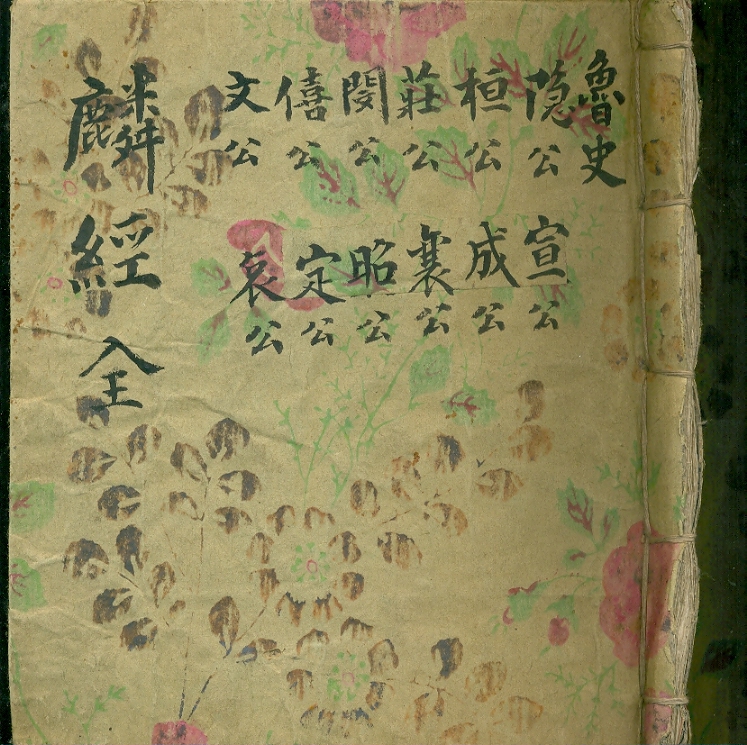 魯史
隐公 宣公
桓公 成公
莊公 襄公
閔公 昭公
僖公 定公
文公 哀公
麟經全